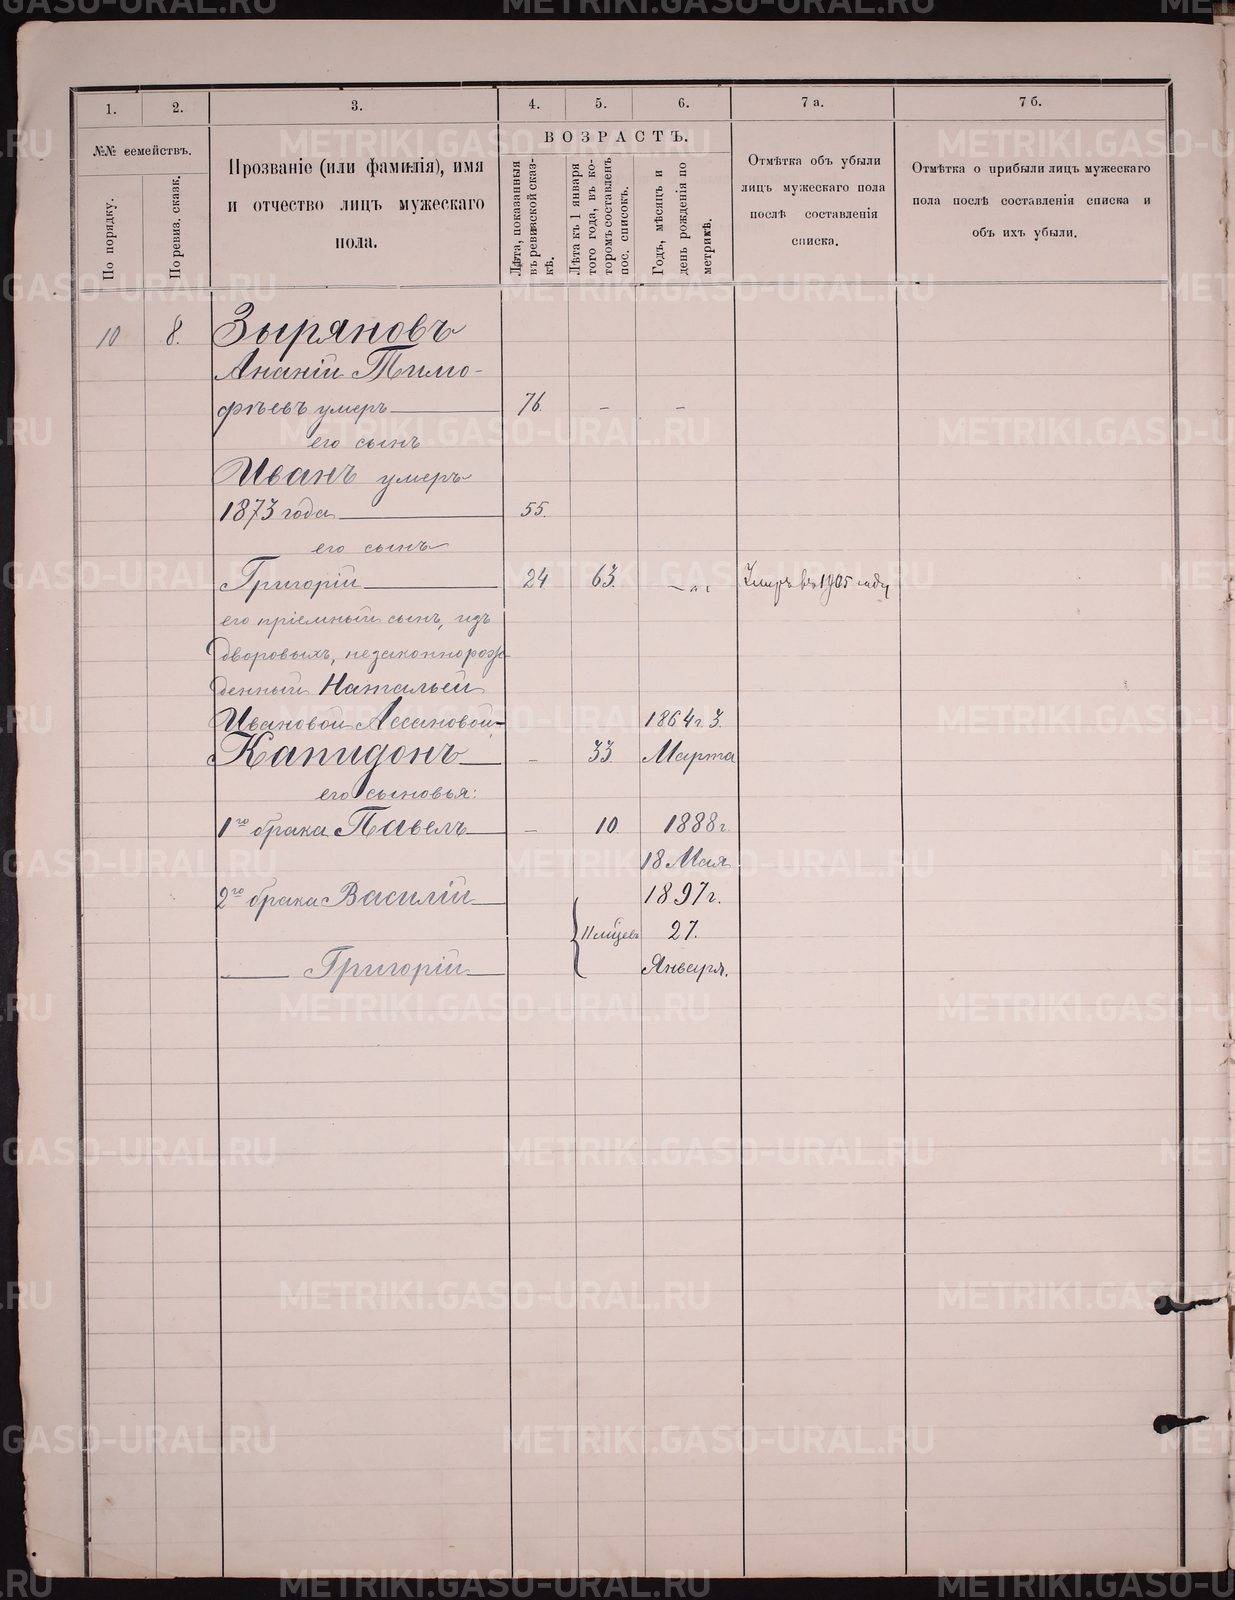 1. 2. 3. 4. 5. 6. 7 а. 7 б.
№№ семействъ.
По порядку.
По ревиз. сказк.
Прозваніе (или фамилія), имя
и отчество лицъ мужескаго
пола.
ВОЗРАСТЪ.
Лѣта, показанныя
въ ревизской сказ-
кѣ.
Лѣта къ 1 января
того года, въ ко-
торомъ составленъ
пос. списокъ.
Годъ, мѣсяцъ и
день рожденія по
метрикѣ.
Отмѣтка объ убыли
лицъ мужескаго пола
послѣ составленія
списка.
Отмѣтка о прибыли лицъ мужескаго
пола послѣ составленія списка и
объ ихъ убыли.
10 8. Зыряновъ
Ананій Тимо-
фѣевъ умеръ 76. - -
его сынъ
Иванъ умеръ
1873 года 55.
его сынъ
Григорій 24 63. Умеръ въ 1905 году
его пріемный сынъ, изъ
дворовыхъ, незаконнорож-
денный Натальей
Ивановой Ассановой- 1864 г. 3.
Капидонъ - 33. Марта
его сыновья:
1го брака Павелъ - 10. 1888 г.
18 Мая
2го брака Василій 1897 г.
11 мѣцевъ 27.
Григорій Января.
METRIKI.GASO-URAL.RU